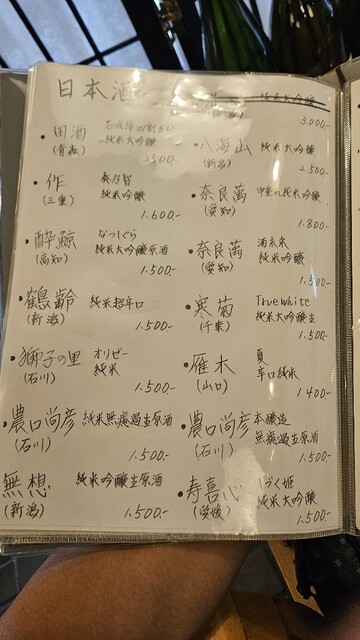 日本酒
純米大吟醸
3,000.-
・田酒
(青森)
純米大吟醸
2500.-
・八海山 純米大吟醸
(新潟)
2,500.-
・作
(三重)
奈乃智
純米吟醸
1.600.-
・奈良萬 中垂れ純米吟醸
(愛知)
1.800.-
・酔鯨
(高知)
なつくぢら
純米大吟醸原酒
1.500.-
・奈良萬
(愛知)
酒未来
純米吟醸
1,500.-
・鶴齢 純米超辛口
(新潟)
1.500.-
・寒菊
(千葉)
True White
純米大吟醸生
1.500.-
・獅子の里
(石川)
オリゼー
純米
1.500.-
・雁木
(山口)
夏
辛口純米
1.400.-
・農口尚彦 純米無濾過生原酒
(石川)
1.500.-
・農口尚彦
(石川)
本醸造
無濾過生原酒
1.500.-
無想 純米吟醸生原酒
(新潟)
1,500.-
・寿喜心
(愛媛)
しずく媛
純米大吟醸
1,500.-